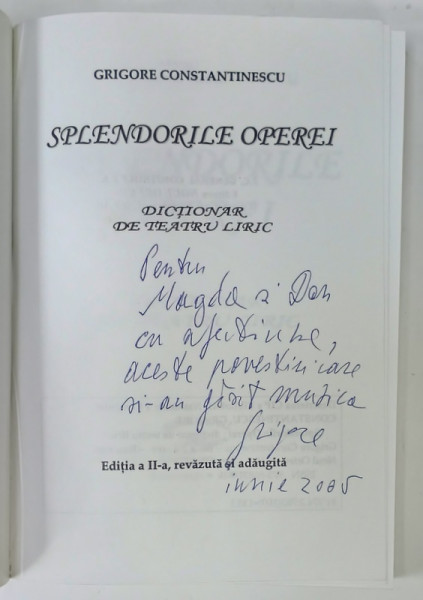 GRIGORE CONSTANTINESCU
SPLENDORILE OPEREI
DICȚIONAR
DE TEATRU LIRIC
Pentru
Magda și Dan
cu afecțiune,
aceste povestiri care
și-au găsit muzica
Grigore
Ediția a II-a, revăzută și adăugită
iunie 2005